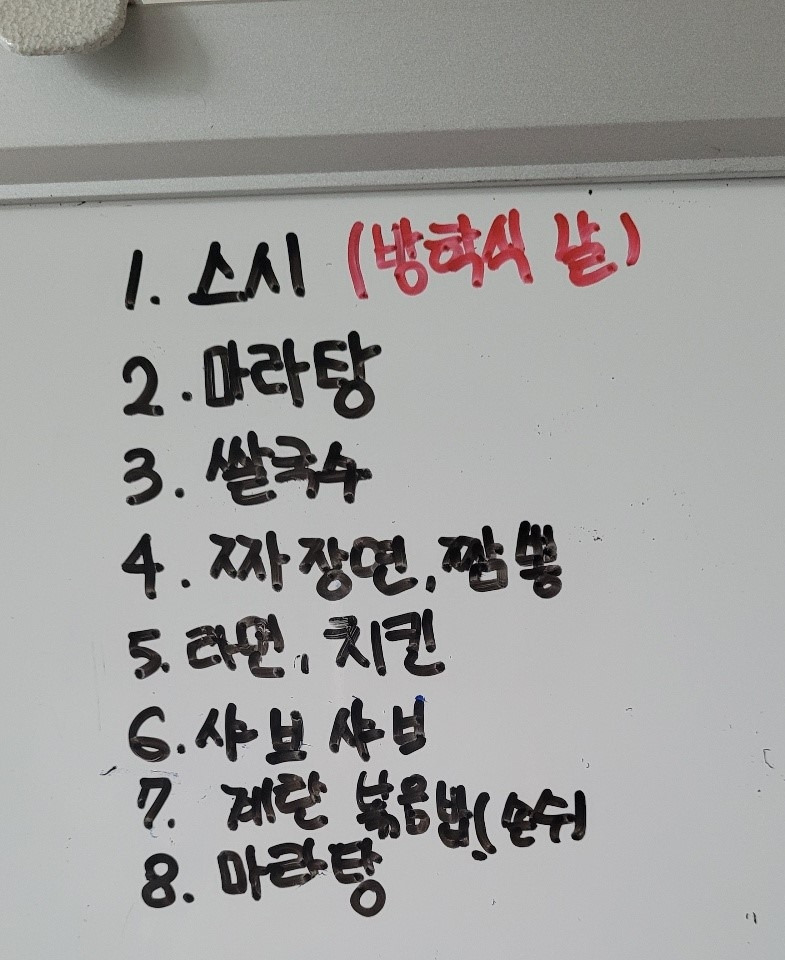 1. 스시 (방학식 날)
2. 마라탕
3. 쌀국수
4. 짜장면, 짬뽕
5. 라면, 치킨
6. 샤브 샤브
7. 계란 볶음밥,(
8. 마라탕